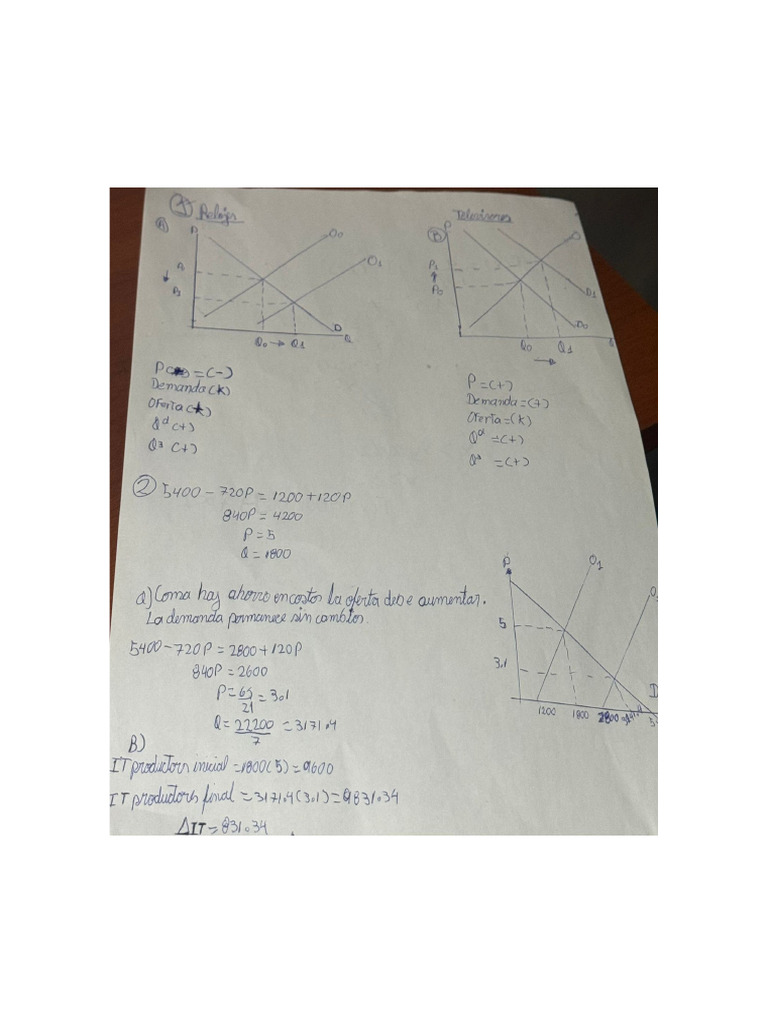 1) Relojes
A)
P
O0
O1
A
B
D
Q0 → Q1
Q
P = (-)
Demanda (k)
Oferta (k)
Qd (+)
Qs (+)
Televisores
B)
P
O
P1
P0
D1
D0
Q0 Q1
→
P = (+)
Demanda = (+)
Oferta = (k)
Qd = (+)
Qs = (+)
2) 5400 - 720P = 1200 + 120P
840P = 4200
P = 5
Q = 1800
a) Como hay ahorro en costos la oferta debe aumentar.
La demanda permanece sin cambios.
5400 - 720P = 2800 + 120P
840P = 2600
P = 65/21 = 3.1
Q = 22200/7 = 3171.4
P
O1
O
5
3.1
D
1200 1800 2800
B)
IT productors inicial = 1800(5) = 9600
IT productors final = 3171.4(3.1) = 9831.34
ΔIT = 831.34